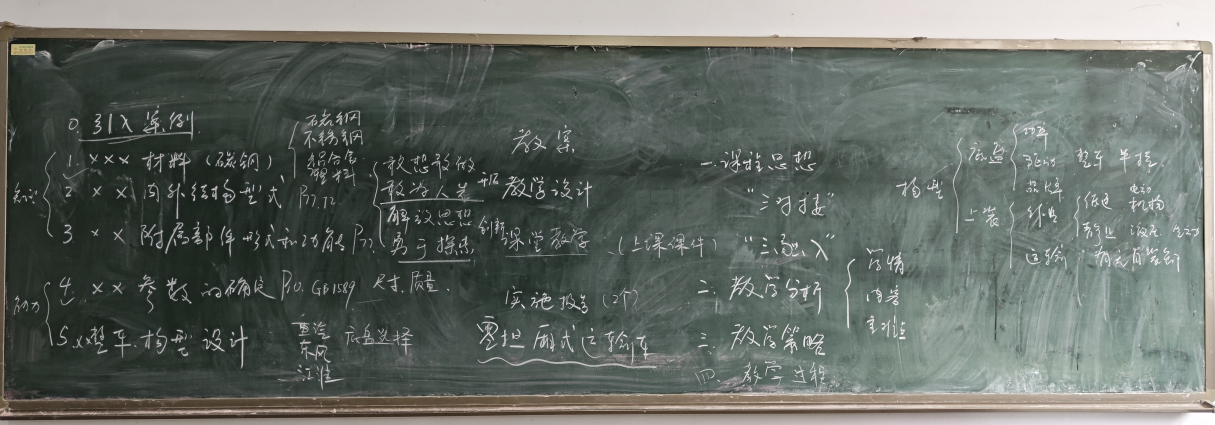 0. 引入案例
知识
1. ××× 材料（碳钢）
碳钢
不锈钢
铝合金
塑料
2 × × 内外结构型式
3. × × 附属部件形式和功能
能力
4. ×× 参数的确定 GB1589 尺寸.质量.
5. ××整车.构型设计
重汽
东风
江淮
底盘选择
敢想敢做
敢为人先
解放思想
勇于探索
创新
教案
教学设计
课堂教学
（上课课件）
实施报告（2个）
重型厢式运输车
一.课程思想
"三对接"
"三融入"
二.教学分析
学情
内容
重难点
三.教学策略
四.教学过程
构型
底盘
功率
驱动
品牌
整车 半挂.
上装
运输
电动
机构